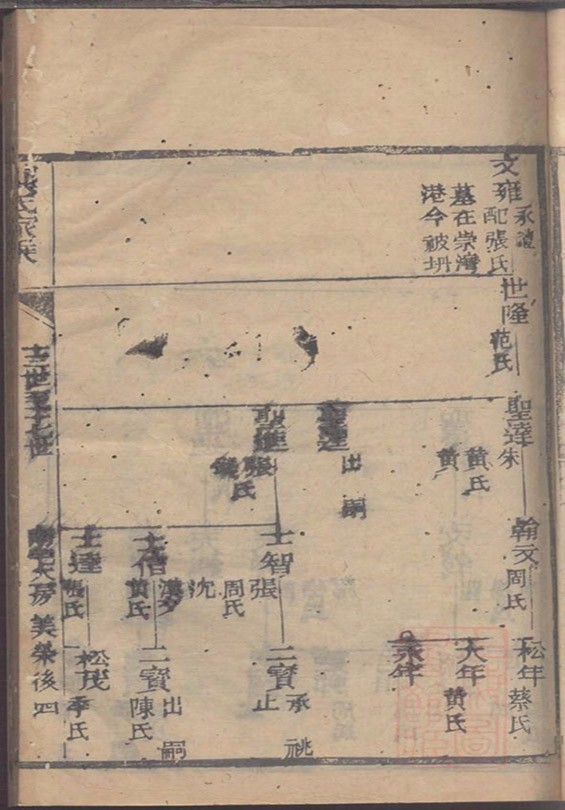 文雍
承禮
配張氏
墓在崇灣
港今被坍
世隆
范氏
聖達
朱
黃氏
黃
聖達
出嗣
聖進
張
錢氏
翰文
周氏
士智
張
周氏
沈
士信
黃氏
士達
張氏
松年
蔡氏
大年
黃氏
永年
二寶
承祧
止
二寶
出嗣
陳氏
松茂
李氏
氏家乘
十三世至十七世
大房美榮後四